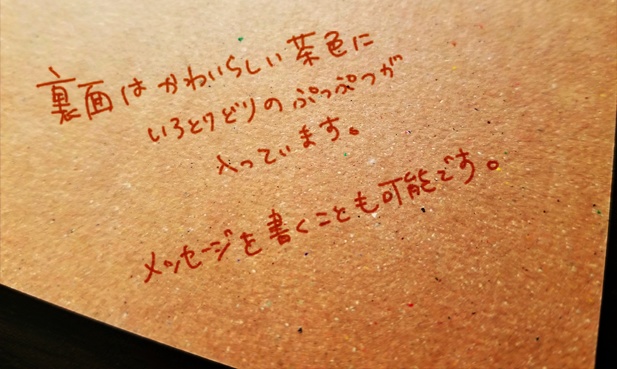 裏面はかわいらしい茶色に
いろとりどりのぷつぷつが
入っています。
メッセージを書くことも可能です。